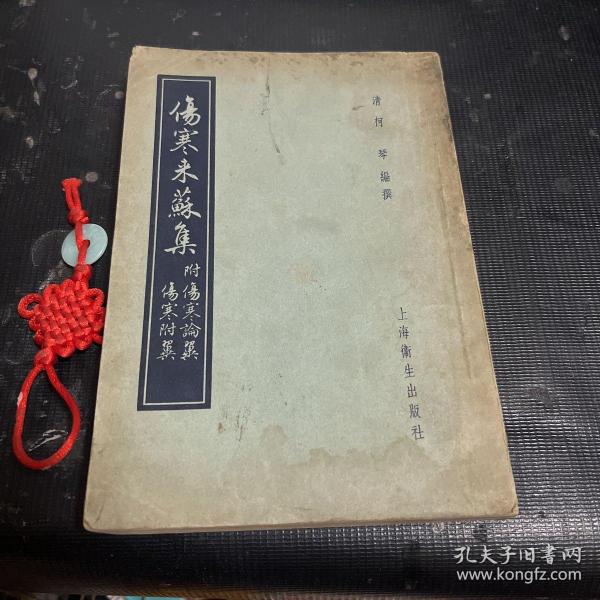 傷寒来蘇集
附傷寒論翼
傷寒附翼
清柯琴編撰
上海衛生出版社
孔夫子旧书网
www.kongfz.com